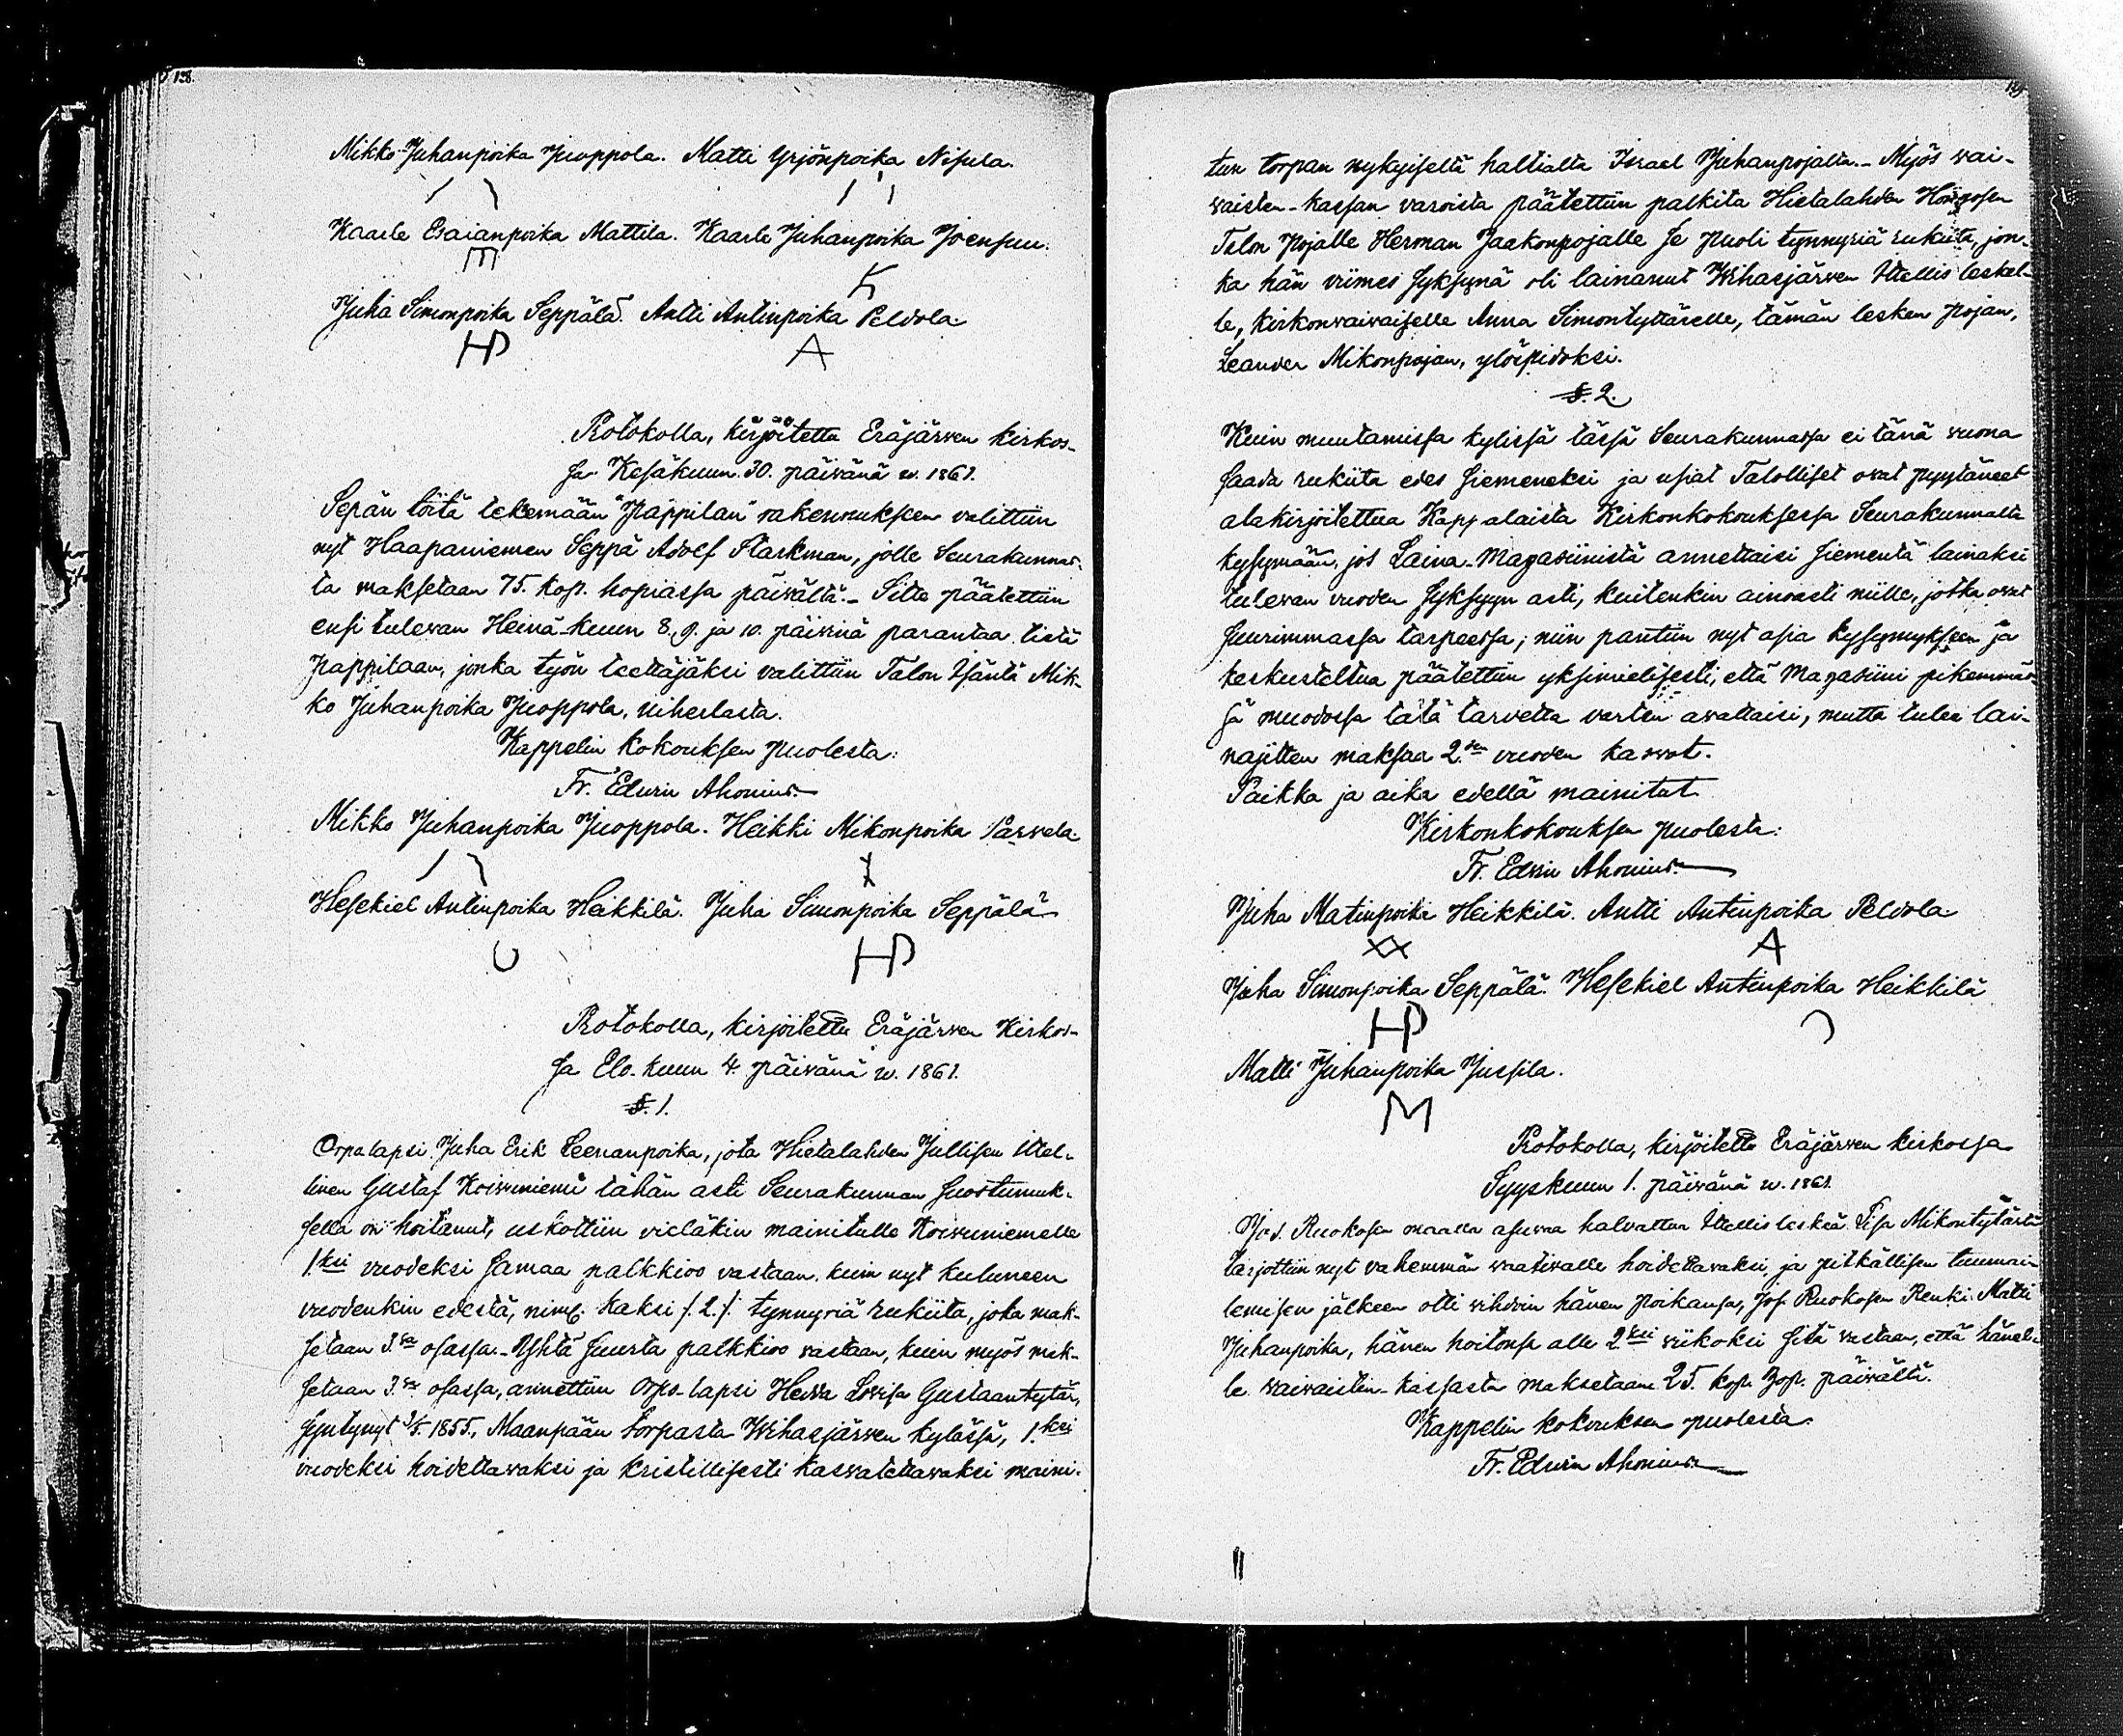 138.
Mikko Juhanpoika Juoppola. Matti Yrjönpoika Nisula.
Kaarle Esaianpoika Mattila. Kaarle Juhanpoika Joensuu.
M
K
Juha Simonpoika Seppälä. Antti Antinpoika Peldola
HP A
Protokolla, kirjoitettu Eräjärwen kirkos-
sa Kesäkuun 30. päiwänä w. 1861.
Sepän töitä tekemään "Pappilan" rakennukseen valittiin
nyt Haapaniemen Seppä Adolf Starkman, jolle Seurakunnas-
ta maksetaan 75. kop. hopiassa päivältä. – Sitte päätettiin
ensi tulewan Heinä-kuun 8. 9. ja 10. päiwinä parantaa tietä
Pappilaan, jonka työn teettäjäksi valittiin Talon Isäntä Mik-
ko Juhanpoika Juoppola, Uiherlasta.
Kappelin kokouksen puolesta:
Fr. Edwin Ahonius.
Mikko Juhanpoika Juoppola. Heikki Mikonpoika Järvelä
X
Hesekiel Antinpoika Heikkilä. Juha Simonpoika Seppälä
U HP
Protokolla, kirjoitettu Eräjärwen Kirkos-
sa Elo-kuun 4. päivänä w. 1861.
§. 1.
Orpo lapsi Juha Erik Leenanpoika, jota Hietalahden Jullisen Itel-
linen Gustaf Koiwuniemi tähän asti Seurakunnan suostumuk-
sella on hoitanut, uskottiin vieläkin mainitulle Koiwuniemelle
1.ksi vuodeksi samaa palkkioo vastaan kuin nyt kuluneen
vuodenkin edestä, nimg. kaksi /: 2. /: tynnyriä rukiita, joka mak-
setaan 3.sa osassa. – Yhtä suurta palkkioo wastaan, kuin myös mak-
setaan 3.sa osassa, annettiin Orpo-lapsi Hedda Lowisa Gustaantytär,
syntynyt 3/5. 1855., Maanpään torpasta Wihasjärwen kylässä, 1.ksi
vuodeksi hoidettawaksi ja kristillisesti kaswatettawaksi maini-
139
tun torpan nykyiseltä haltialta Israel Juhanpojalta. – Myös wai-
waisten-kassan varoista päätettiin palkita Hietalahden
Talon Pojalle Herman Jaakonpojalle se puoli tynnyriä rukiita, jon-
ka hän viimes syksynä oli lainanut Wihasjärwen Itellis leskel-
le, kirkonwaiwaiselle Anna Simontyttärelle, tämän lesken pojan,
Leander Mikonpojan, ylöspidoksi.
§. 2.
Kuin muutamissa kylissä tässä Seurakunnassa ei tänä vuona
saada rukiita edes siemeneksi ja usiat Talolliset ovat pyytäneet
alakirjoitettua Kappalaista Kirkonkokouksessa Seurakunnalta
kysymään, jos Laina-Magasiinistä annettaisi siementä lainaksi
tulewan vuoden syksyyn asti, kuitenkin ainoasti niille, jotka ovat
suurimmassa tarpeessa; niin pantiin nyt asia kysymykseen ja
keskusteltua päätettiin yksimielisesti, että Magasiini pikemmäs-
sä muodossa tätä tarvetta varten avattaisi, mutta tulee lai-
najitten maksaa 2.den vuoden kaswot.
Paikka ja aika edellä mainitut
Kirkonkokouksen puolesta:
Fr. Edwin Ahonius.
Juha Matinpoika Heikkilä. Antti Antinpoika Peldola
XX A
Juha Simonpoika Seppälä. Hesekiel Antinpoika Heikkilä
HP
Matti Juhanpoika Jussila.
M
Protokolla, kirjoitettu Eräjärwen kirkossa
Syyskuun 1. päiwänä w. 1861.
Jos. Ruokosen maalla asuwa halvattua Itellis leskeä Lisa Mikontytärtä
tarjottiin nyt vähemmän waatiwalle hoidettavaksi, ja pitkällisen tuumai-
lemisen jälkeen otti wihdoin hänen poikansa, Jos. Ruokosen Renki Matti
Juhanpoika, hänen hoitonsa alle 2.ksi wiikoksi sitä vastaan, että hänel-
le waiwaisten-kassasta maksetaan 25. kop. hop. päivältä.
Kappelin kokouksen puolesta
Fr. Edwin Ahonius